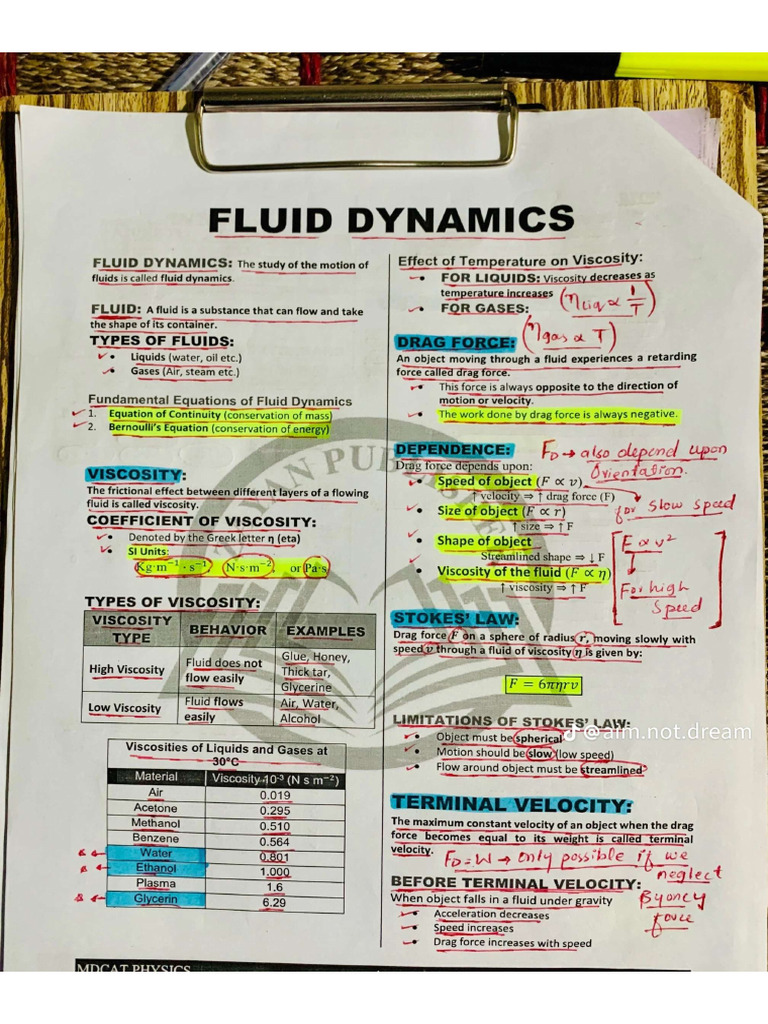 FLUID DYNAMICS
FLUID DYNAMICS: The study of the motion of
fluids is called fluid dynamics.
FLUID: A fluid is a substance that can flow and take
the shape of its container.
TYPES OF FLUIDS:
• Liquids (water, oil etc.)
• Gases (Air, steam etc.)
Fundamental Equations of Fluid Dynamics
1. Equation of Continuity (conservation of mass)
2. Bernoulli's Equation (conservation of energy)
VISCOSITY:
The frictional effect between different layers of a flowing
fluid is called viscosity.
COEFFICIENT OF VISCOSITY:
• Denoted by the Greek letter η (eta)
• SI Units:
Kg·m⁻¹·s⁻¹ N·s·m⁻² or Pa·s
TYPES OF VISCOSITY:
VISCOSITY TYPE BEHAVIOR EXAMPLES
High Viscosity Fluid does not flow easily Glue, Honey, Thick tar, Glycerine
Low Viscosity Fluid flows easily Air, Water, Alcohol
Viscosities of Liquids and Gases at
30°C
Material Viscosity 10⁻³ (N s m⁻²)
Air 0.019
Acetone 0.295
Methanol 0.510
Benzene 0.564
Water 0.801
Ethanol 1.000
Plasma 1.6
Glycerin 6.29
Effect of Temperature on Viscosity:
• FOR LIQUIDS: Viscosity decreases as
temperature increases (η liq ∝ 1/T)
• FOR GASES:
(η gas ∝ T)
DRAG FORCE:
An object moving through a fluid experiences a retarding
force called drag force.
• This force is always opposite to the direction of
motion or velocity.
• The work done by drag force is always negative.
DEPENDENCE: F_D → also depend upon
Orientation.
Drag force depends upon:
• Speed of object (F ∝ v)
↑ velocity ⇒ ↑ drag force (F) for slow speed
• Size of object (F ∝ r)
↑ size ⇒ ↑ F
• Shape of object
Streamlined shape ⇒ ↓ F
• Viscosity of the fluid (F ∝ η)
↑ viscosity ⇒ ↑ F
F ∝ v²
For high
Speed
STOKES' LAW:
Drag force F on a sphere of radius r, moving slowly with
speed v through a fluid of viscosity η is given by:
F = 6πηrv
LIMITATIONS OF STOKES' LAW:
• Object must be spherical
• Motion should be slow (low speed)
• Flow around object must be streamlined
@aim.not.dream
TERMINAL VELOCITY:
The maximum constant velocity of an object when the drag
force becomes equal to its weight is called terminal
velocity.
F_D = W → only possible if we
neglect
Byoncy
force
BEFORE TERMINAL VELOCITY:
When object falls in a fluid under gravity
• Acceleration decreases
• Speed increases
• Drag force increases with speed
MDCAT PHYSICS